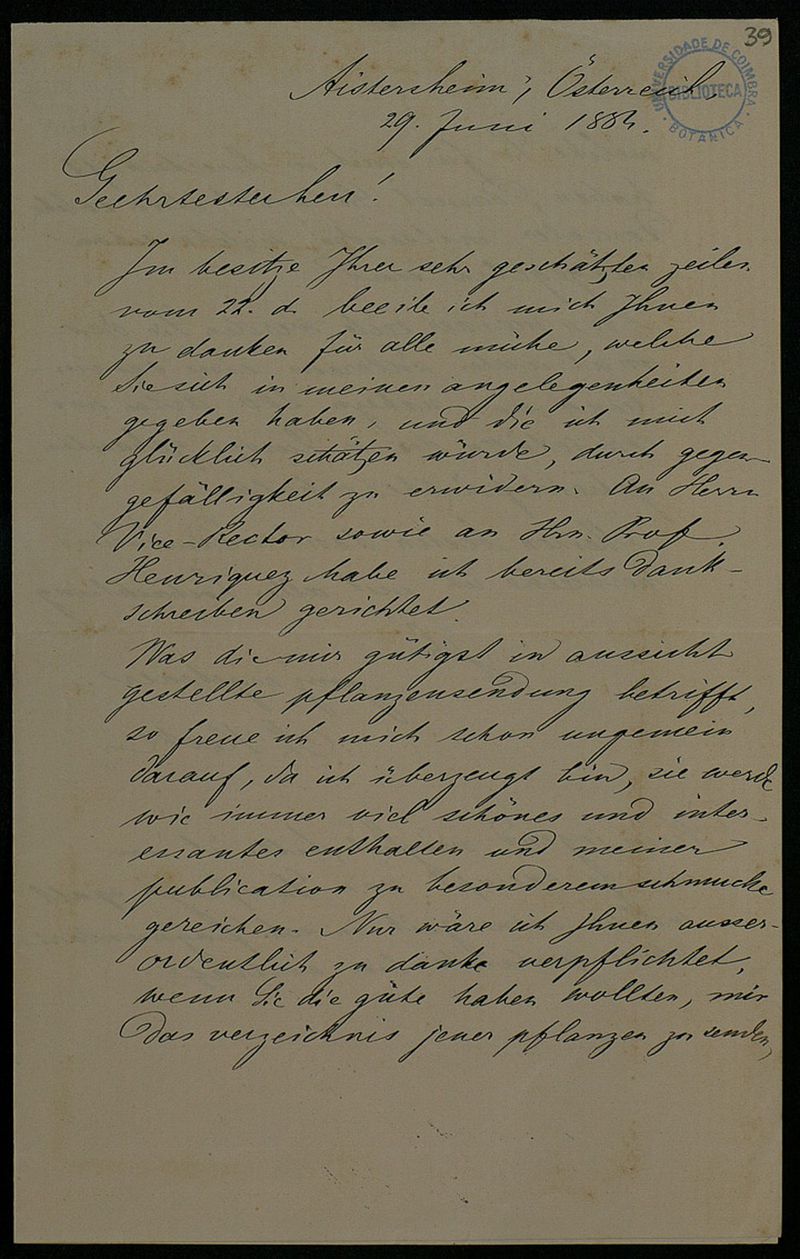 39
UNIVERSIDADE DE COIMBRA
BIBLIOTECA
BOTANICA
Aistersheim, Österreich
29. Juni 188
Geehrtester herr!
Im besitze Ihrer sehr geschätzten zeilen
vom 22. d. beeile ich mich Ihnen
zu danken für alle mühe, welche
Sie sich in meinen angelegenheiten
gegeben haben, und die ich mich
glücklich schätzen würde, durch gegen-
gefälligkeit zu erwidern. An Herrn
Vice-Rector sowie an Hrn. Prof.
Henriquez habe ich bereits dank-
schreiben gerichtet.
Was die mir gütigst in aussicht
gestellte pflanzensendung betrifft,
so freue ich mich schon ungemein
darauf, da ich überzeugt bin, sie werde
wie immer viel schönes und inter-
essantes enthalten und meiner
publication zu besonderem schmucke
gereichen. Nur wäre ich Ihnen ausser-
ordentlich zu danke verpflichtet,
wenn Sie die güte haben wollten, mir
das verzeichnis jener pflanzen zu senden,